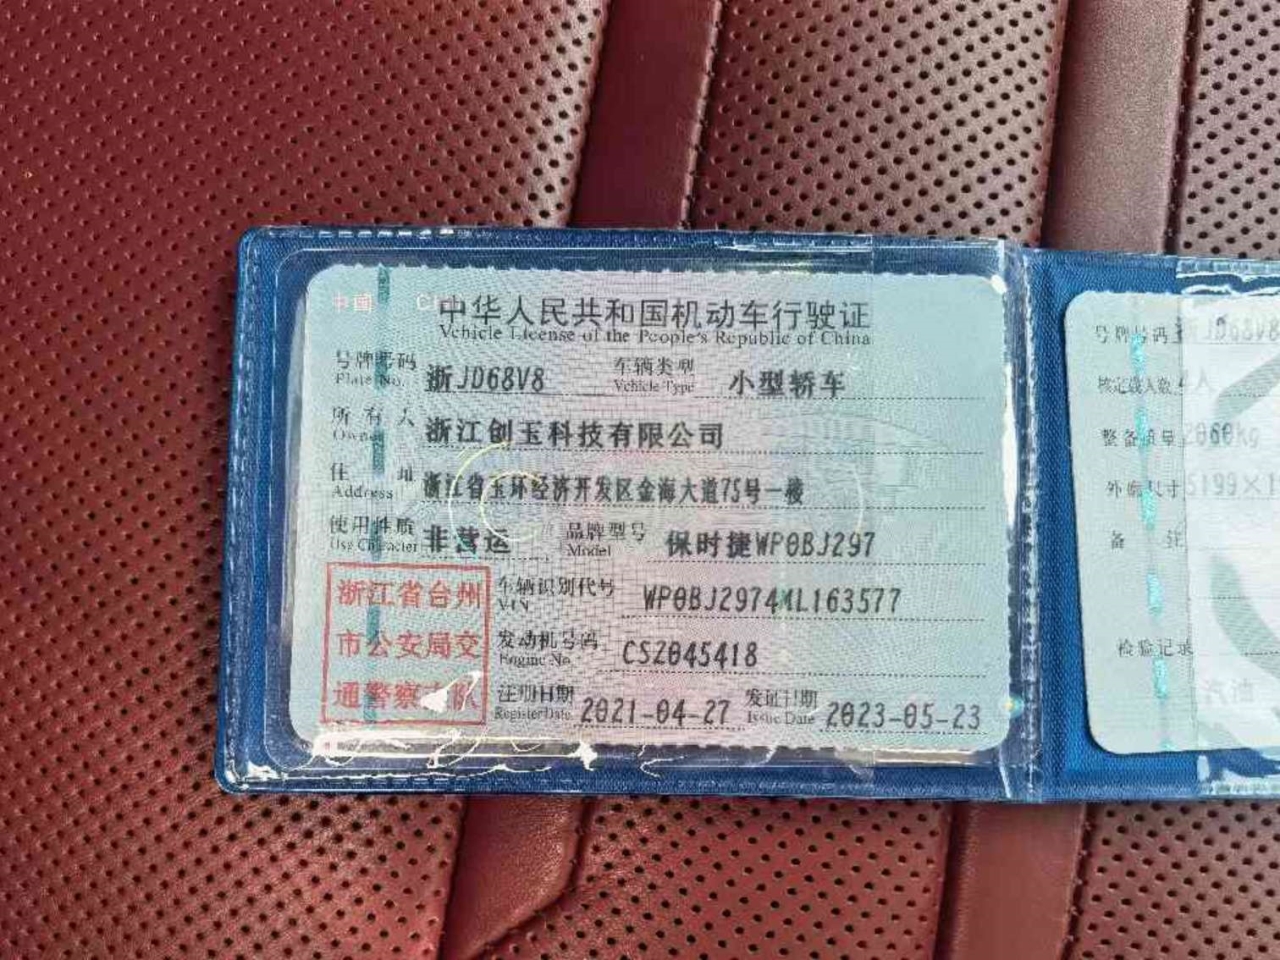 中国
中华人民共和国机动车行驶证
Vehicle License of the People's Republic of China
号牌号码 浙JD68V8 车辆类型 小型轿车
Plate No. Vehicle Type
所有人 浙江创玉科技有限公司
Owner
住址 浙江省玉环经济开发区金海大道75号一楼
Address
使用性质 非营运 品牌型号 保时捷WP0BJ297
Use Character Model
浙江省台州
市公安局交
通警察支队
车辆识别代号 WP0BJ2974ML163577
VIN
发动机号码 CSZ045418
Engine No.
注册日期 2021-04-27 发证日期 2023-05-23
Register Date Issue Date
号牌号码 浙JD68V8
核定载人数 4人
整备质量 2060kg
外廓尺寸 5199×1
备注
检验记录
汽油